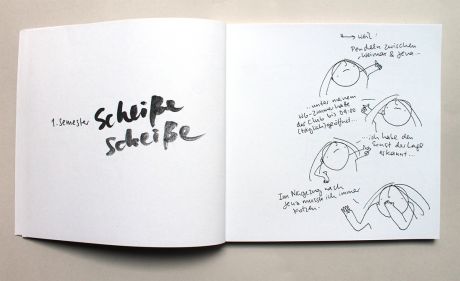 1. Semester Scheiße
Scheiße
weil:
Pendeln zwischen
Weimar & Jena..
...unter meinem
WG-Zimmer hatte
der Club bis 04:00
(täglich) geöffnet...
...ich habe den
Ernst der Lage
erkannt...
Im Nahverzug nach
Jena musste ich immer
kotzen.